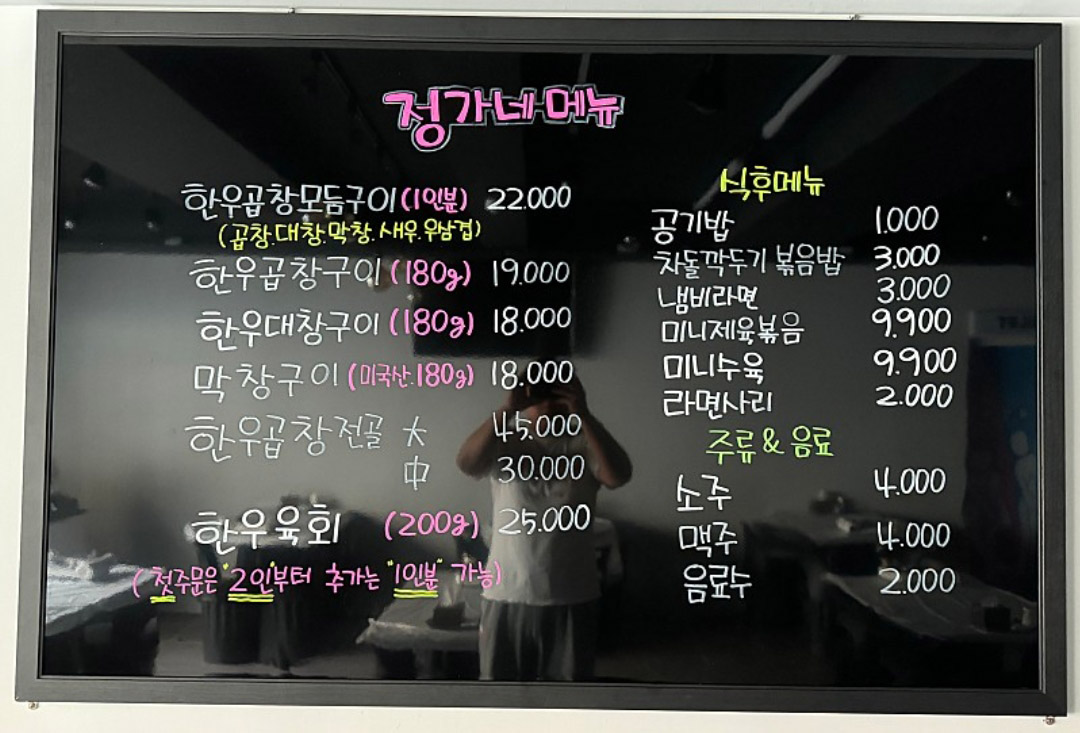 정가네 메뉴
한우곱창모둠구이 (1인분) 22.000
(곱창.대창.막창.새우.우삼겹)
한우곱창구이 (180g) 19.000
한우대창구이 (180g) 18.000
막창구이 (미국산.180g) 18.000
한우곱창전골 大 45.000
中 30.000
한우육회 (200g) 25.000
(첫주문은 "2인"부터 추가는 "1인분" 가능)
식후메뉴
공기밥 1.000
차돌깍두기 볶음밥 3.000
냄비라면 3.000
미니제육볶음 9.900
미니수육 9.900
라면사리 2.000
주류 & 음료
소주 4.000
맥주 4.000
음료수 2.000